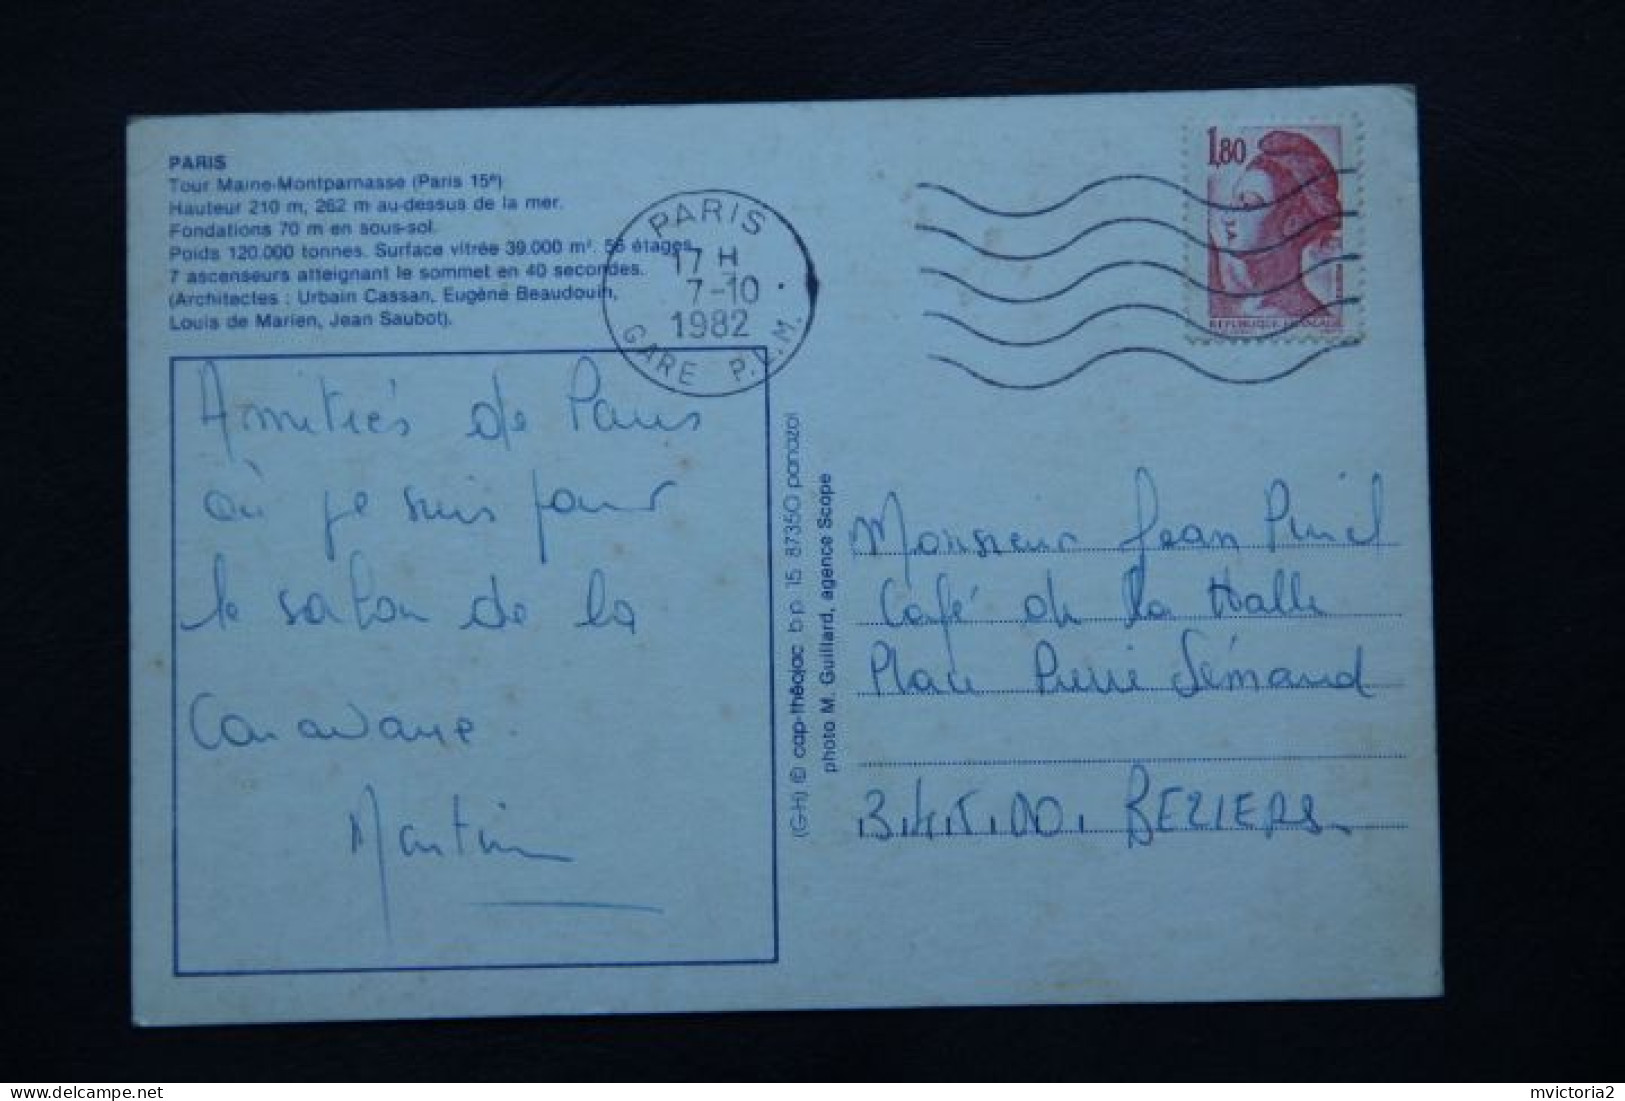 PARIS
Tour Maine-Montparnasse (Paris 15e)
Hauteur 210 m, 262 m au-dessus de la mer.
Fondations 70 m en sous-sol.
Poids 120.000 tonnes. Surface vitrée 39.000 m². 56 étages.
7 ascenseurs atteignant le sommet en 40 secondes.
(Architectes : Urbain Cassan, Eugène Beaudouin,
Louis de Marien, Jean Saubot).
PARIS
17 H
7-10
1982
GARE P.L.M.
1,80
REPUBLIQUE FRANÇAISE
Amitiés de Paris
où je suis pour
le salon de la
Caravane.
Martin
(G-H) © cap-théojac b p. 15 87350 panazol
photo M. Guillard, agence Scope
Monsieur Jean
Café de la Halle
Place Pierre Sémard
34500 BEZIERS
mvictoria2